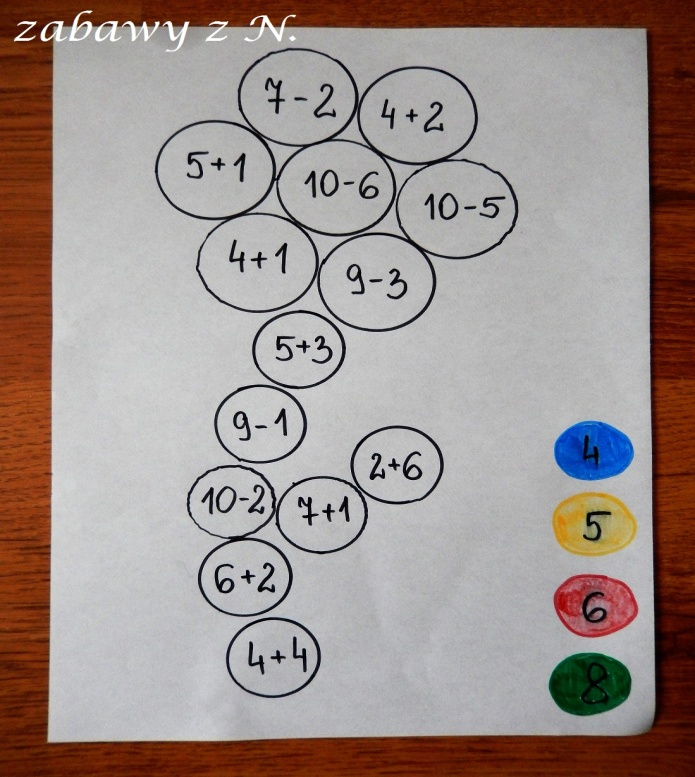 zabawy z N.
7-2
4+2
5+1
10-6
10-5
4+1
9-3
5+3
9-1
2+6
10-2
7+1
6+2
4+4
4
5
6
8